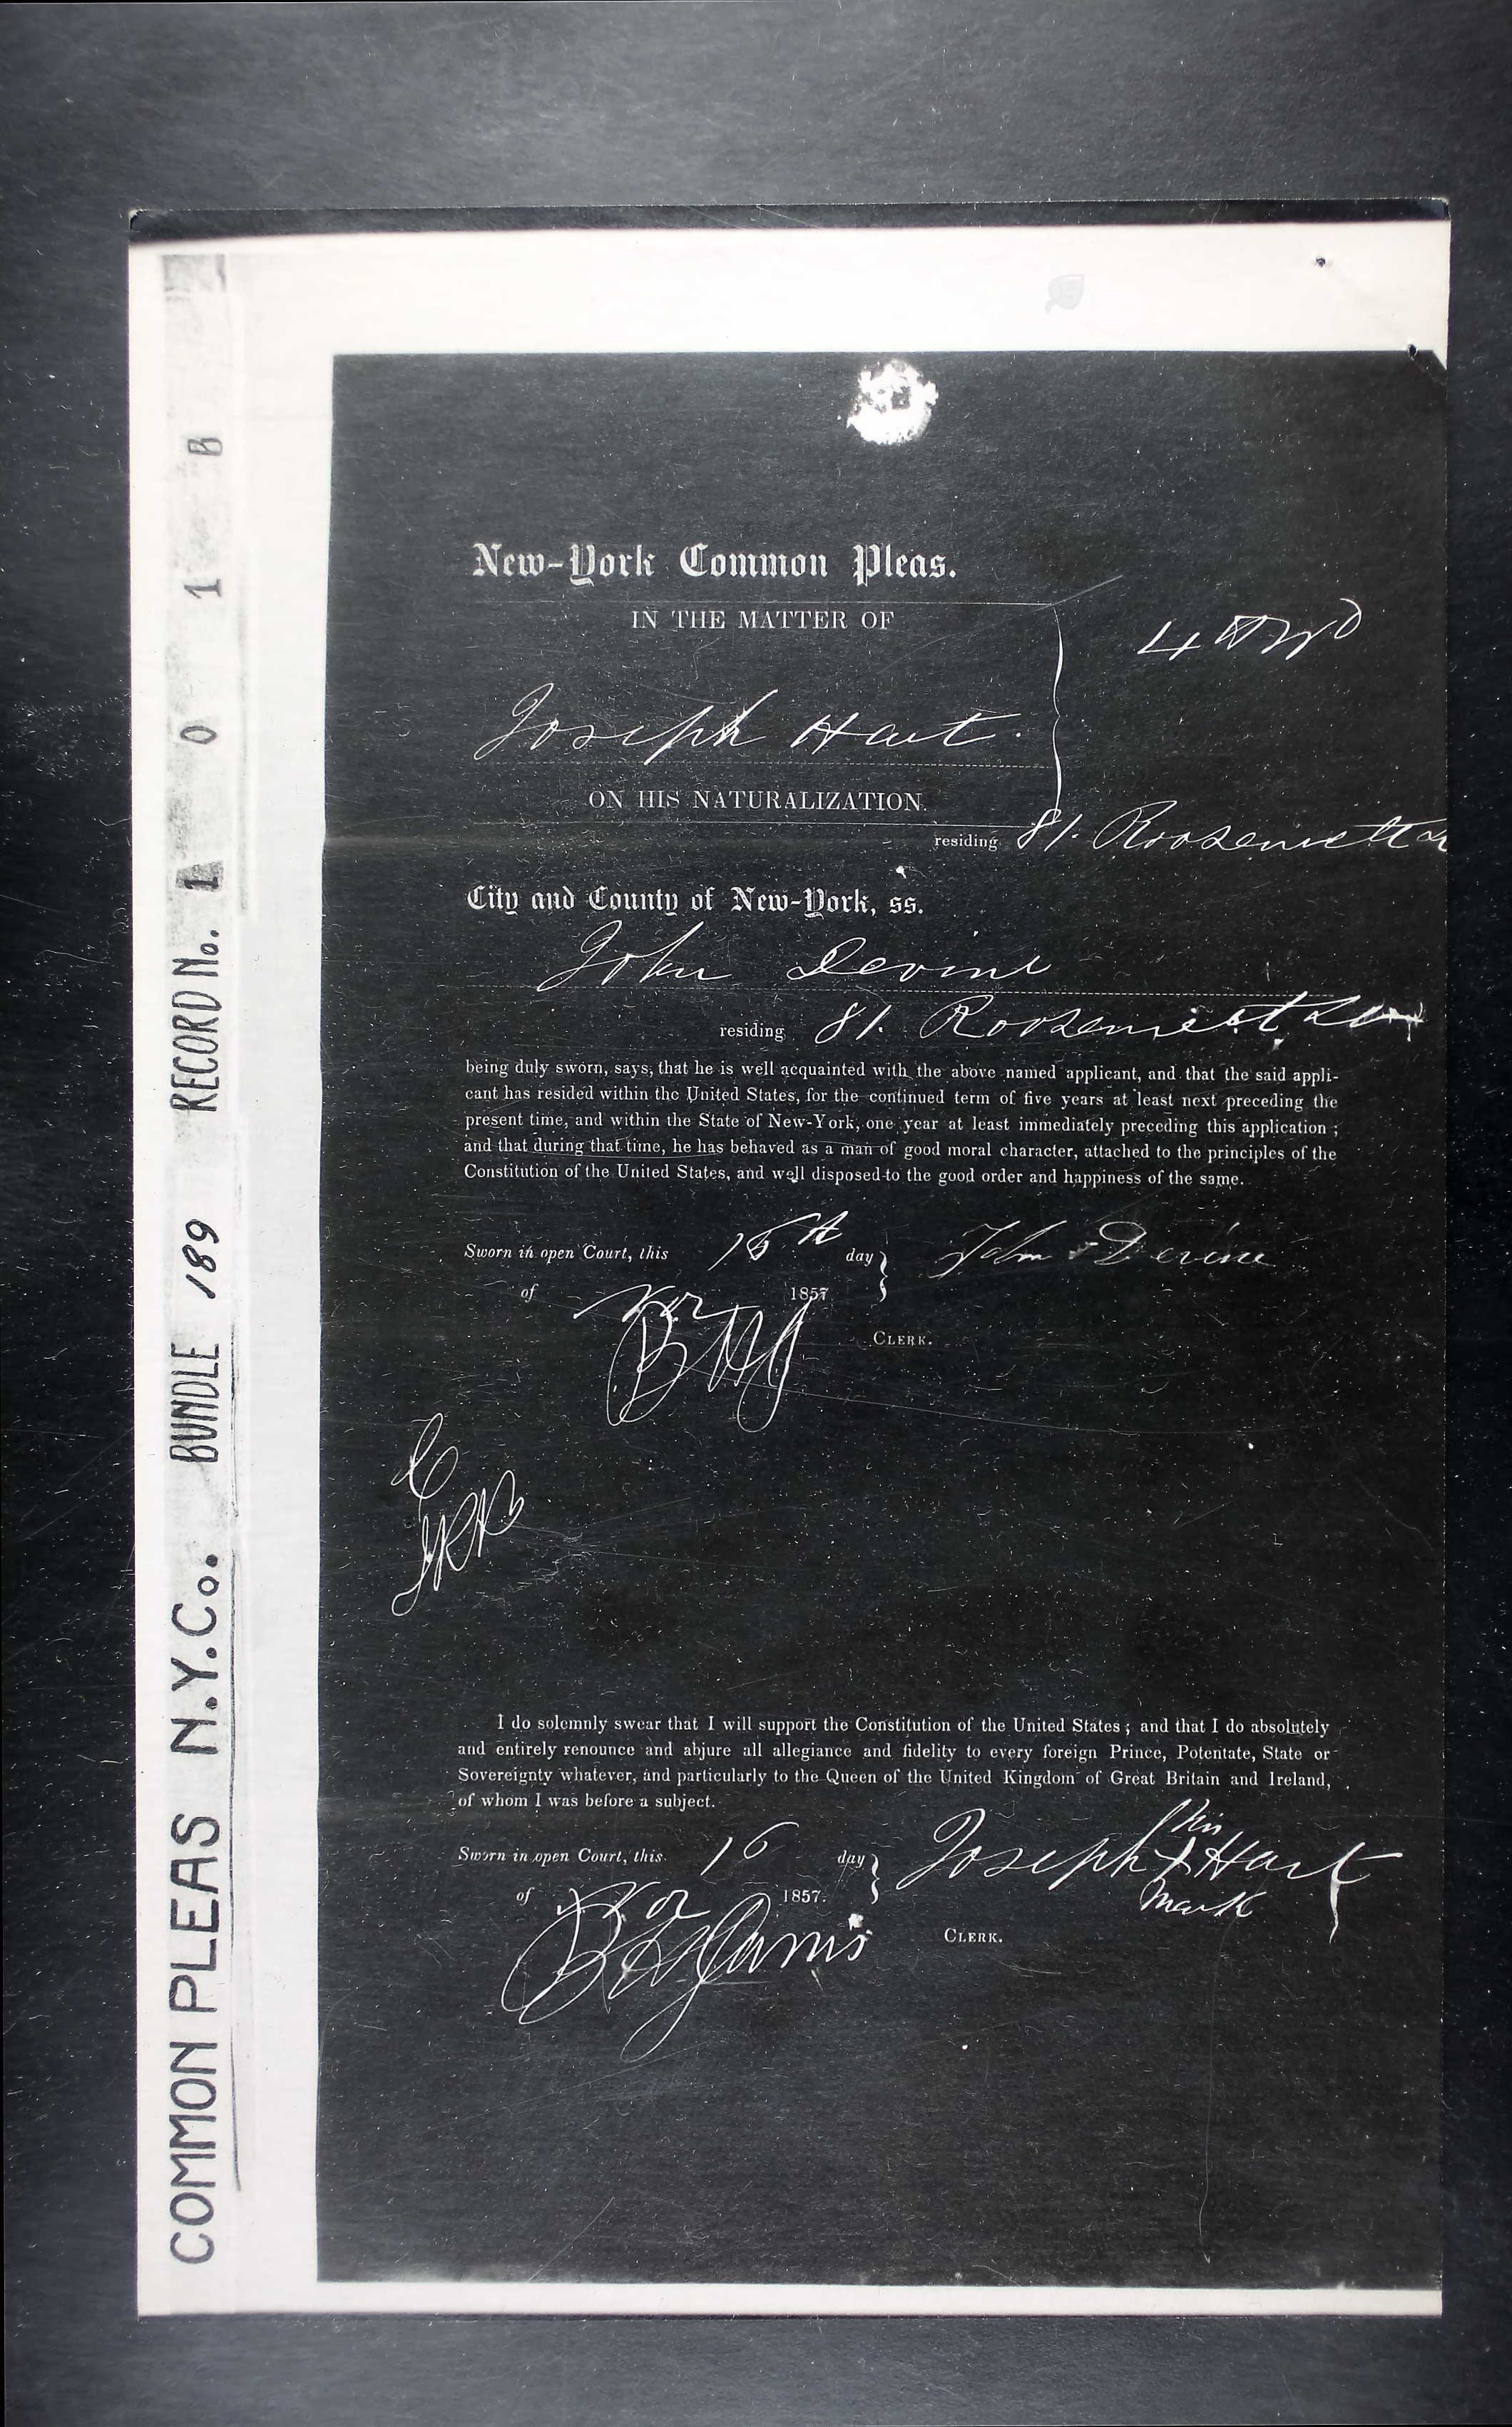 COMMON PLEAS N.Y.Co. BUNDLE 189 RECORD No. 1 0 1 B
New-York Common Pleas.
IN THE MATTER OF
4th Wd
Joseph Hart.
ON HIS NATURALIZATION.
residing 81. Roosevelt
City and County of New-York, ss.
John Devine
residing 81. Roosevelt
being duly sworn, says, that he is well acquainted with the above named applicant, and that the said appli-
cant has resided within the United States, for the continued term of five years at least next preceding the
present time, and within the State of New-York, one year at least immediately preceding this application ;
and that during that time, he has behaved as a man of good moral character, attached to the principles of the
Constitution of the United States, and well disposed to the good order and happiness of the same.
Sworn in open Court, this day John Devine
of 1857
CLERK.
I do solemnly swear that I will support the Constitution of the United States ; and that I do absolutely
and entirely renounce and abjure all allegiance and fidelity to every foreign Prince, Potentate, State or
Sovereignty whatever, and particularly to the Queen of the United Kingdom of Great Britain and Ireland,
of whom I was before a subject.
his
Sworn in open Court, this 16 day Joseph X Hart
mark
of 1857.
CLERK.